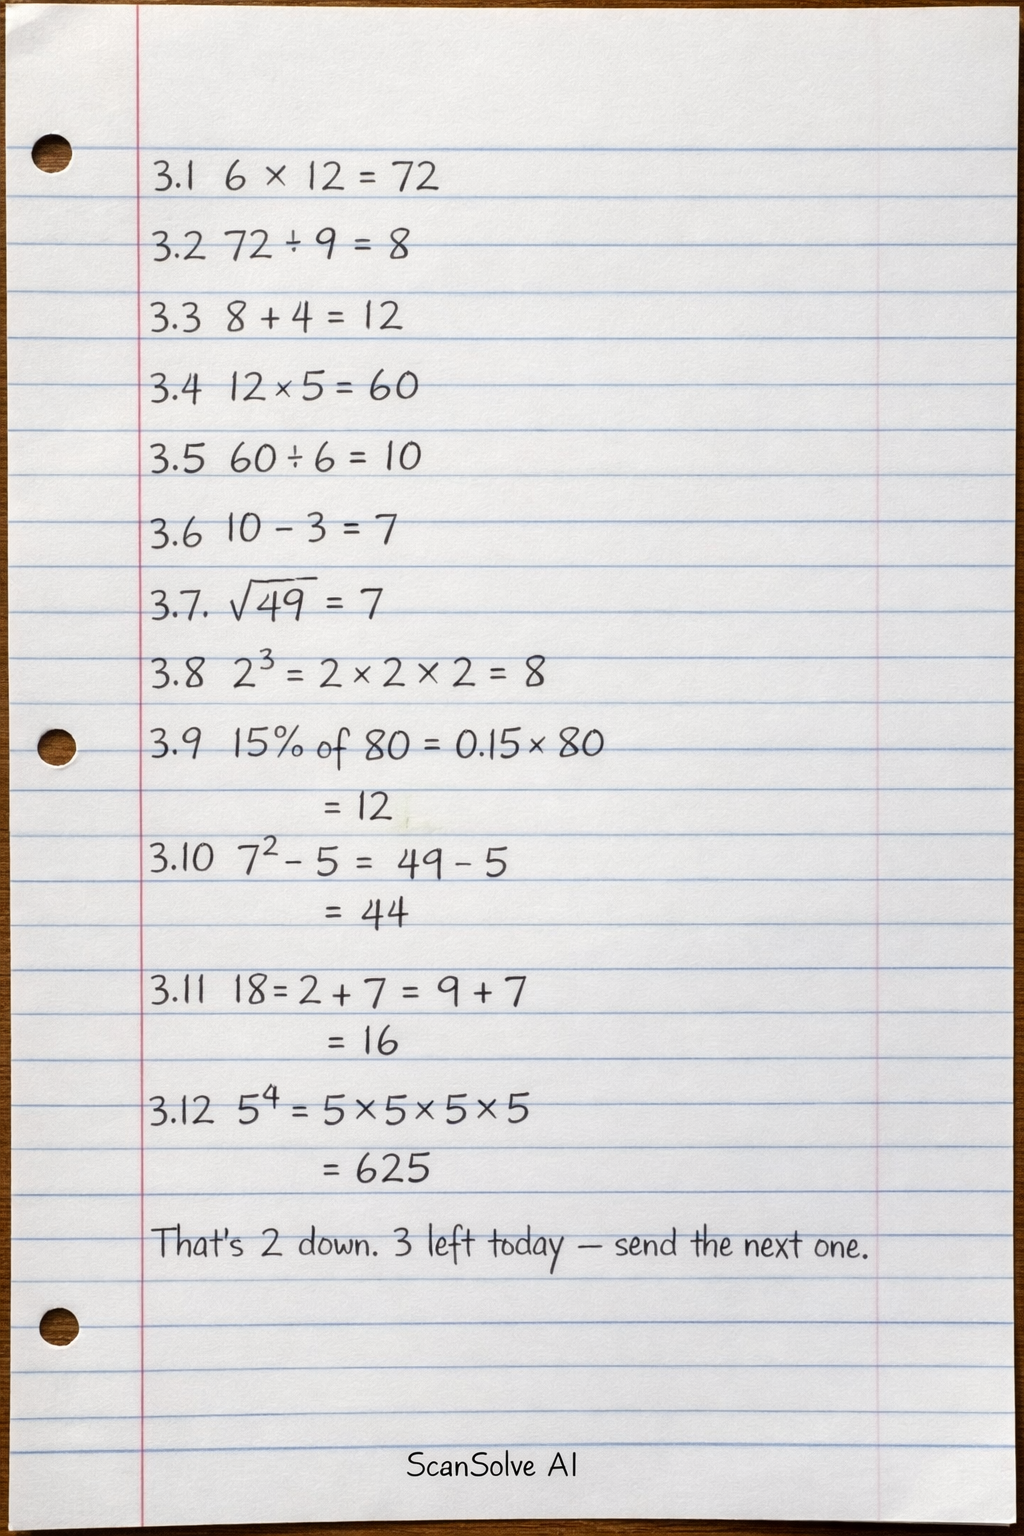 3.1 6 × 12 = 72
3.2 72 ÷ 9 = 8
3.3 8 + 4 = 12
3.4 12 × 5 = 60
3.5 60 ÷ 6 = 10
3.6 10 − 3 = 7
3.7. √49 = 7
3.8 2³ = 2 × 2 × 2 = 8
3.9 15% of 80 = 0.15 × 80
= 12
3.10 7² − 5 = 49 − 5
= 44
3.11 18 = 2 + 7 = 9 + 7
= 16
3.12 5⁴ = 5 × 5 × 5 × 5
= 625
That's 2 down. 3 left today — send the next one.
ScanSolve AI